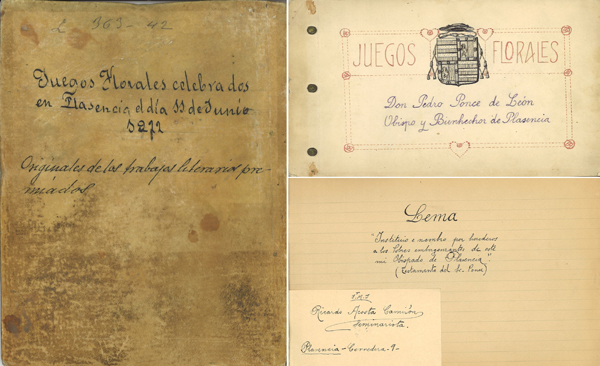 L 363-42
Juegos Florales celebrados
en Plasencia el día 11 de Junio
1272
Originales de los trabajos literarios pre-
miados.
JUEGOS FLORALES
Don Pedro Ponce de León
Obispo y Bienhechor de Plasencia
Lema
"Instituio e nombro por herederos
a los Pobres embergonzantes de este
mi Obispado de Plasencia"
(Testamento del Sr. Ponce)
Ricardo Acosta
Seminarista.
Plasencia - Corredera - 9 -